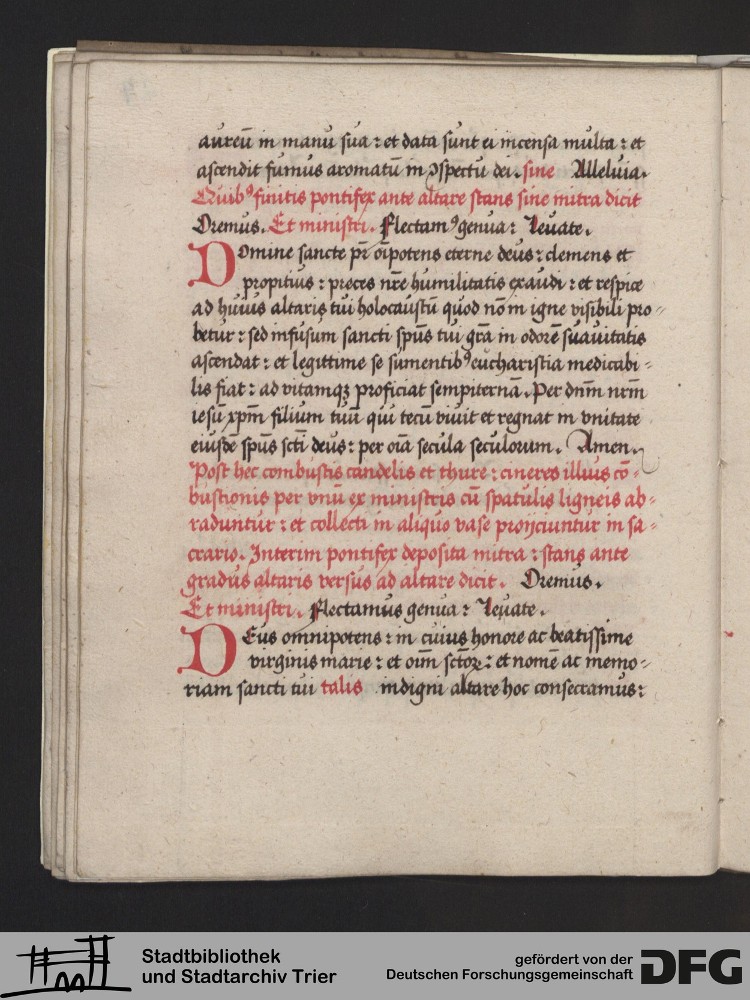 aureū in manu sua : et data sunt ei incensa multa : et
ascendit fumus aromatū in ꝯspectu dei. sine Alleluia.
Quibꝰ finitis pontifex ante altare stans sine mitra dicit
Oremus. Et ministri. Flectamꝰ genua : Leuate.
Domine sancte pr̄ oīpotens eterne deus : clemens et
propitius : preces nr̄e humilitatis exaudi : et respice
ad huius altaris tui holocaustū quod nō in igne visibili pro-
betur : sed infusum sancti sp̄us tui gr̄a in odorē suauitatis
ascendat : et legittime se sumentibꝰ eucharistia medicabi-
lis fiat : ad vitamqꝫ proficiat sempiternā. Per dn̄m nr̄m
iesū xp̄m filium tuū qui tecū viuit et regnat in vnitate
eiusdē sp̄us sc̄ti deus : per oīa secula seculorum. Amen.
Post hec combustis candelis et thure : cineres illius cō-
bustionis per vnū ex ministris cū spatulis ligneis ab-
raduntur : et collecti in aliquo vase proijciuntur in sa-
crario. Interim pontifex deposita mitra : stans ante
gradus altaris versus ad altare dicit. Oremus.
Et ministri. Flectamus genua : Leuate.
DEus omnipotens : in cuius honore ac beatissime
virginis marie : et oīm sctoꝝ : et nomē ac memo-
riam sancti tui talis indigni altare hoc consecramus :
Stadtbibliothek
und Stadtarchiv Trier
gefördert von der
Deutschen Forschungsgemeinschaft
DFG